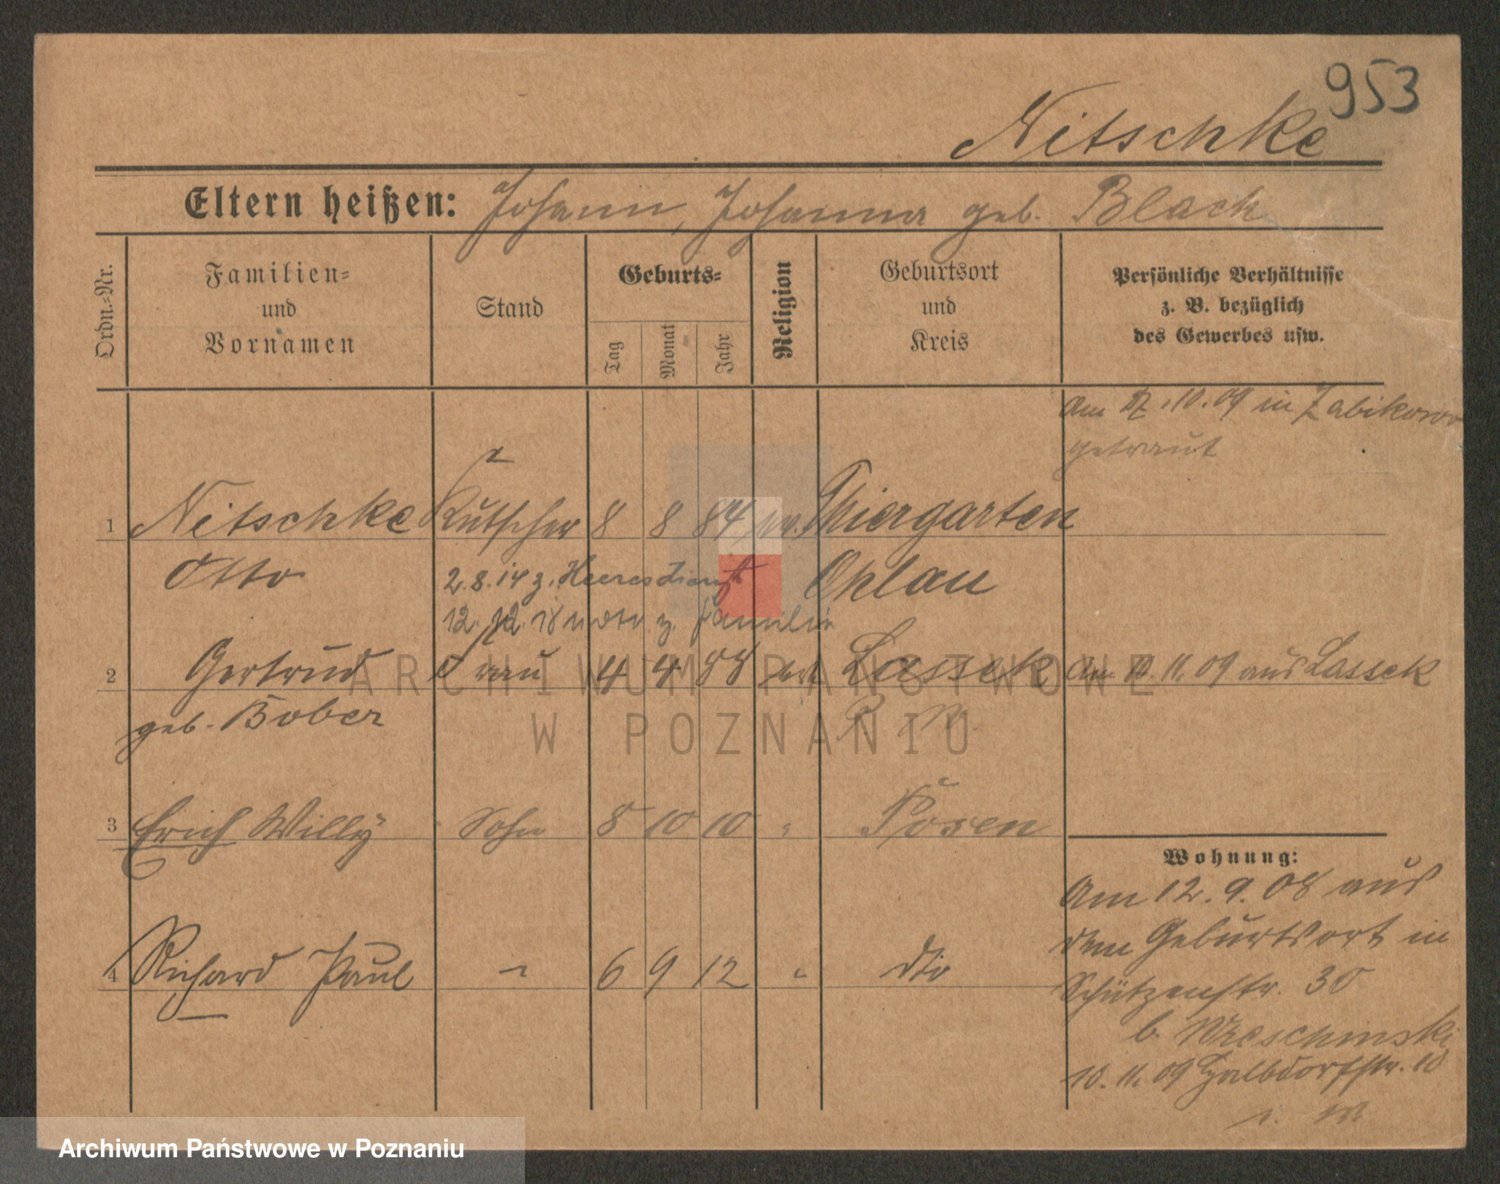 953
Nitschke
Eltern heißen: Johann, Johanna geb. Black
Ordn.=Nr.
Familien=
und
Vornamen
Stand
Geburts=
Tag
Monat
Jahr
Religion
Geburtsort
und
Kreis
Persönliche Verhältnisse
z. B. bezüglich
des Gewerbes usw.
Am 10.09 in Zabikowo
getraut
1 Nitschke Kutscher 8 8 84 Thiergarten
Otto 2.8.14 z. Heeresdienst Ohlau
12.12.18 z. Familie
2 Gertrud Frau 4 4 88 Lassek Am 10.11.09 aus Lassek
geb. Bober P. W.
3 Erich Willy Sohn 8 10 10 " Posen
4 Richard Paul " 6 9 12 " dto
Wohnung:
Am 12.9.08 aus
dem Geburtsort in
Schützenstr. 30
b. Wreschinski
10.11.09 Halbdorfstr. 10
ARCHIWUM PAŃSTWOWE
W POZNANIU
Archiwum Państwowe w Poznaniu